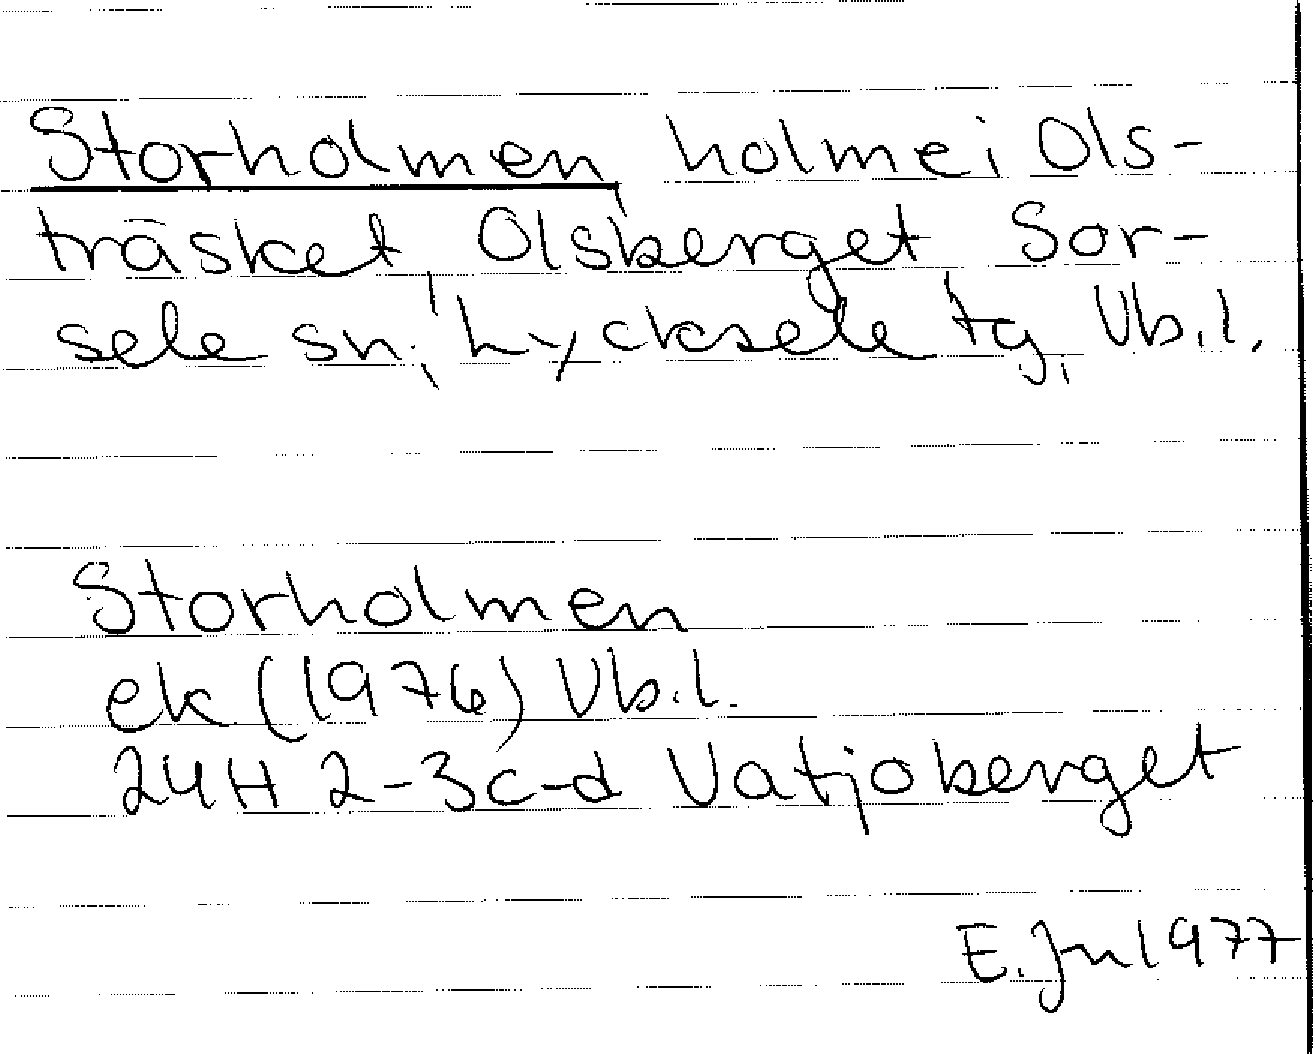 Storholmen, holme i Ols-
träsket, Olsberget Sor-
sele sn, Lycksele tg, Vb.l.
Storholmen
ek (1976) Vb.l.
24H 2-3c-d Vatjoberget
E. Jn 1977